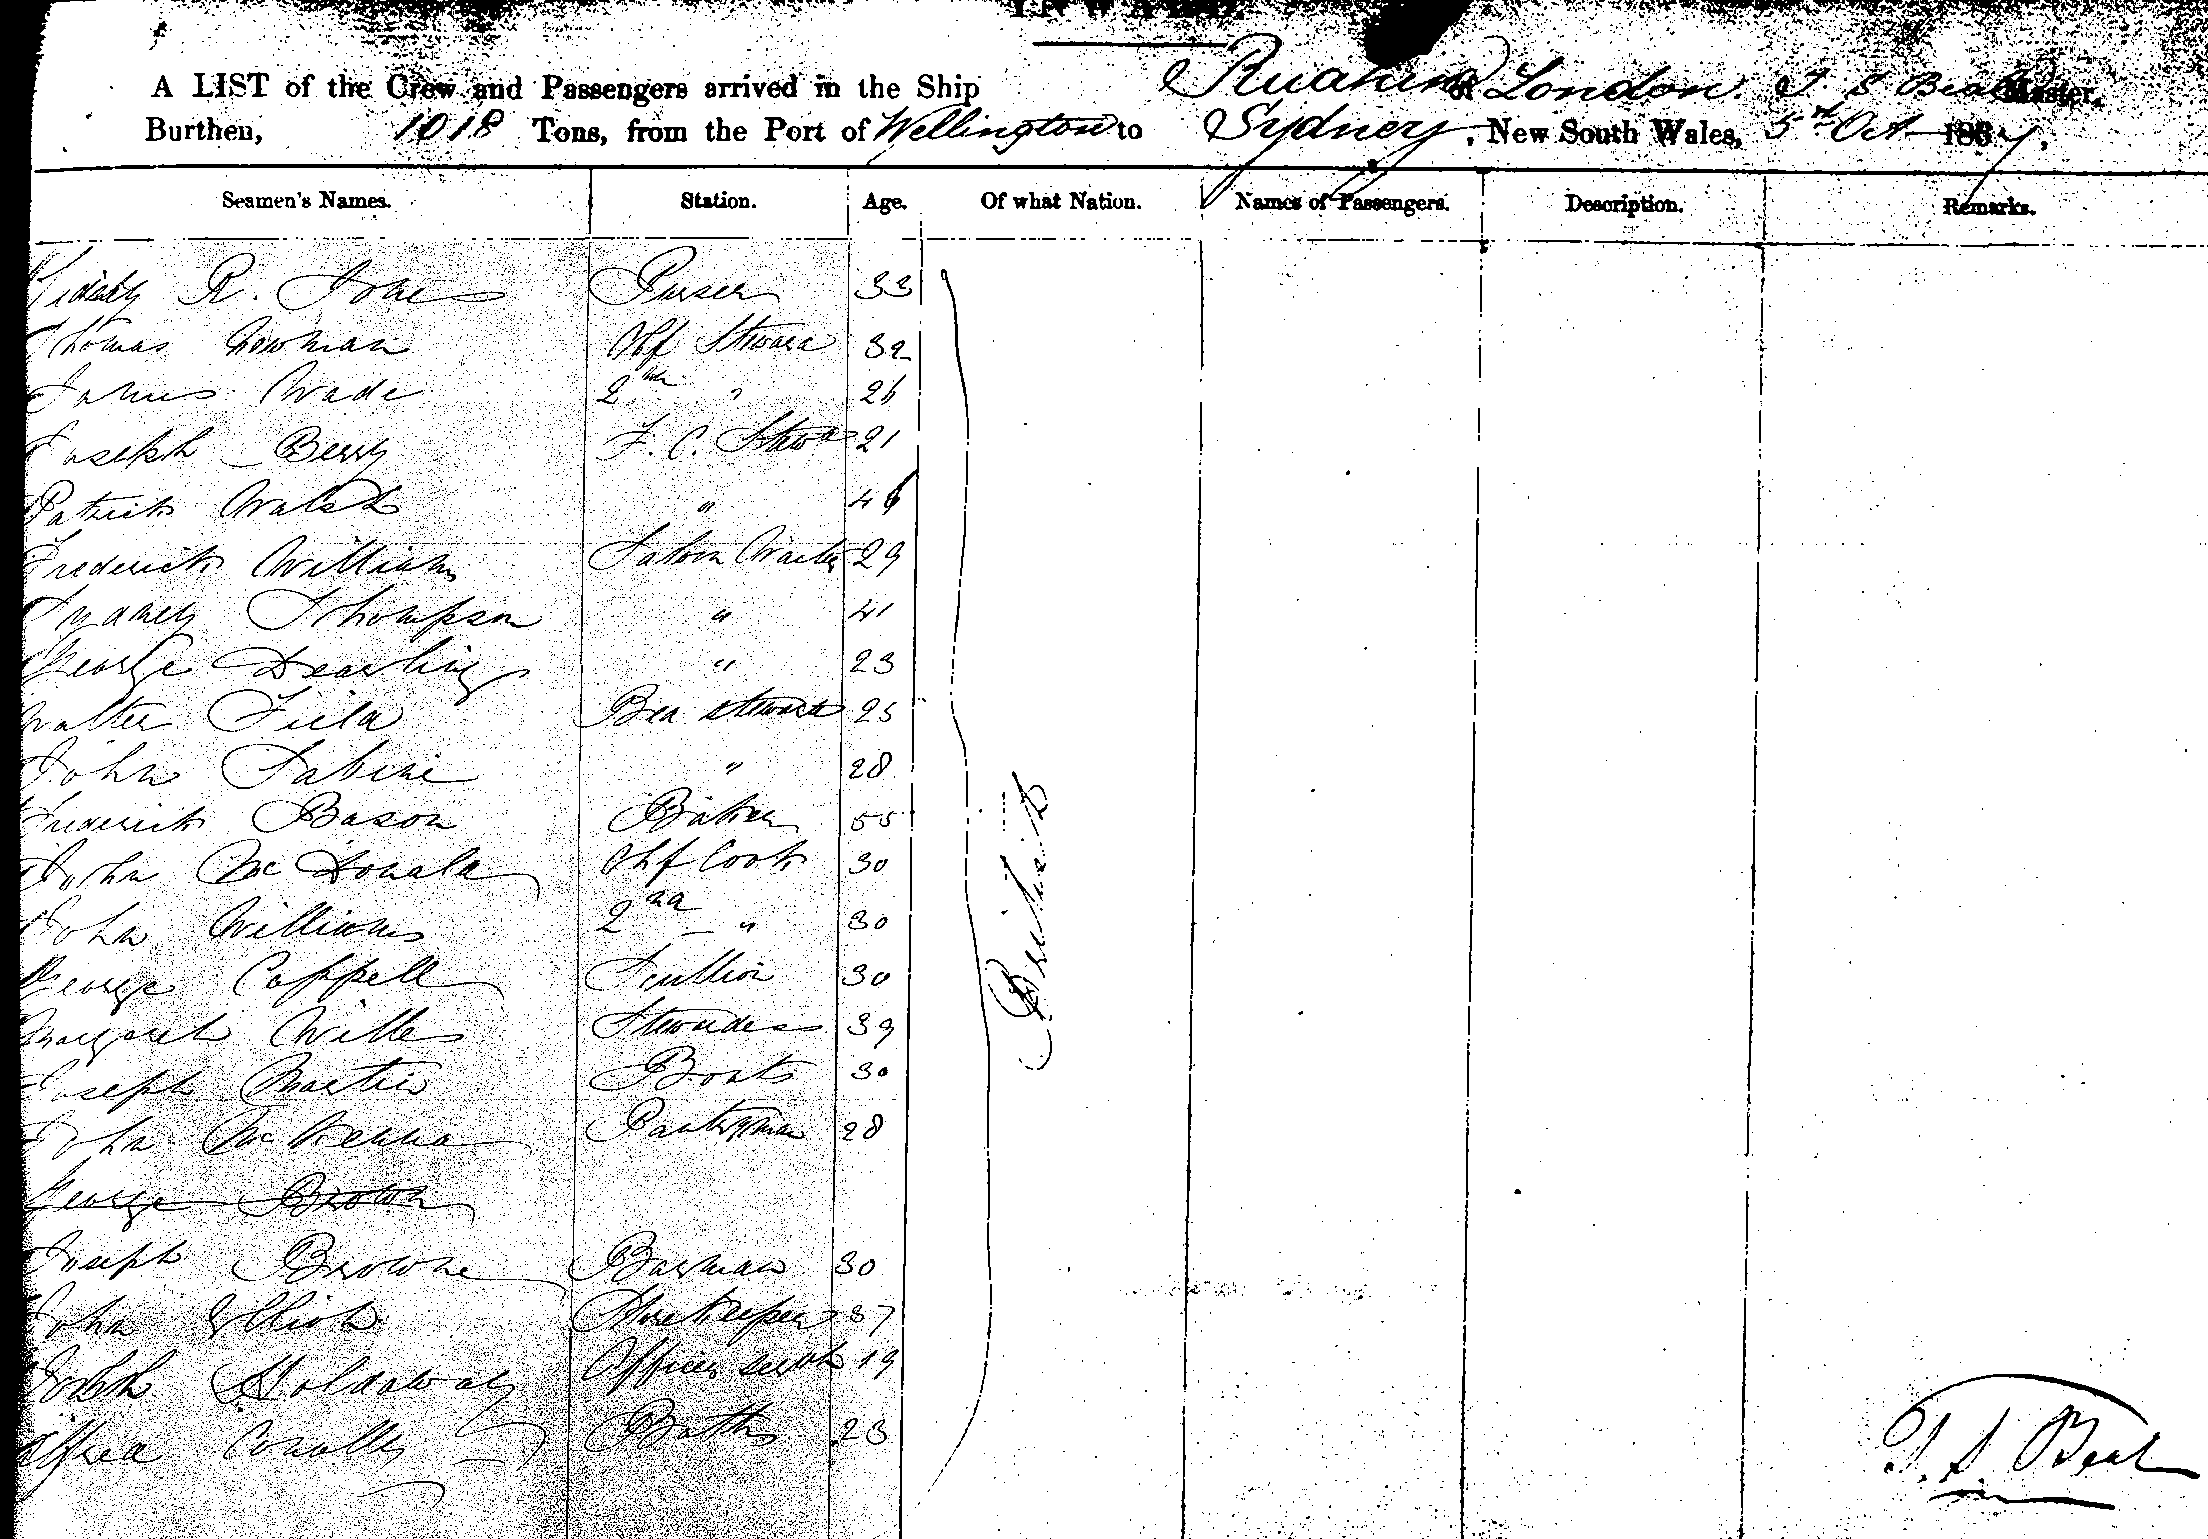 A LIST of the Crew and Passengers arrived in the Ship Ruahine of London T. S. Beal Master,
Burthen, 1018 Tons, from the Port of Wellington to Sydney, New South Wales, 5th Oct 1867.
Seamen's Names. Station. Age. Of what Nation. Names of Passengers. Description. Remarks.
R. Jones Purser 33
Thomas Newman Chf Steward 32
James Wade 2nd " 26
Joseph Berry F. C. Stewd 21
Patrick Walsh " 46
Frederick Williams Saloon Waiter 29
Sydney Thompson " 41
George Dearling " 23
Walter Field Bed Steward 25
John Sabine " 28
Frederick Bason Baker 55
John McDonald Chf Cook 30
John Williams 2nd " 30
George Cappell Scullion 30
Margaret Wills Stewardess 39
Joseph Martin Boots 30
John McKenna Pantryman 28
George Brown
Joseph Browne Barman 30
John Elliott Storekeeper 37
Holdaway Officers 19
Alfred Conolly Baths 23
British
T. S. Beal